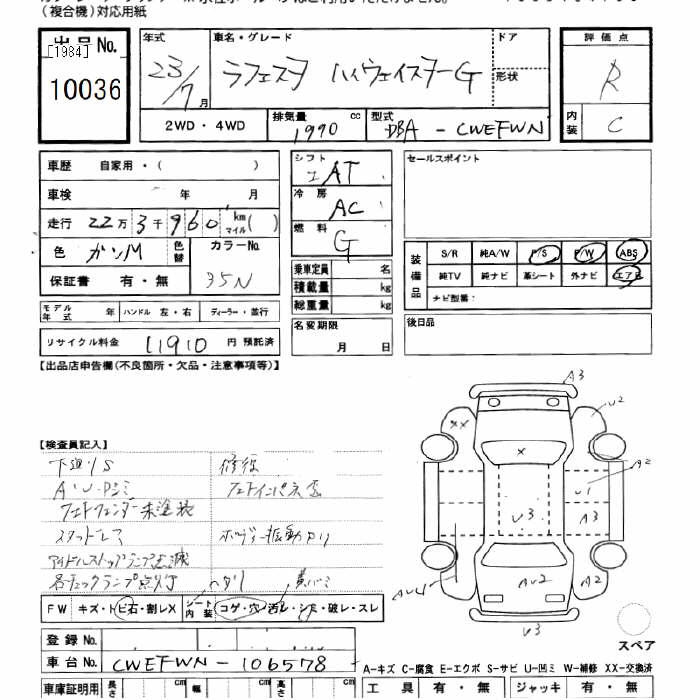 (複合機)対応用紙
出品No.
[1984]
10036
年式
23/7月
車名・グレード
ラフェスタ ハイウェイスターG
ドア
形状
評価点
R
内装
C
2WD・4WD
排気量 1990 cc
型式 DBA - CWEFWN
車歴 自家用・( )
車検 年 月
走行 22万3千960 km マイル( )
色 ガンM
色替
カラーNo. 35N
保証書 有・無
シフト
AT
冷房
AC
燃料
G
乗車定員 名
積載量 kg
総重量 kg
名変期限
月 日
セールスポイント
装備品
S/R 純A/W P/S P/W ABS
純TV 純ナビ 革シート 外ナビ エアB
ナビ型番:
後日品
モデル年式 年
ハンドル 左・右
ディーラー・並行
リサイクル料金 11910 円 預託済
【出品店申告欄(不良箇所・欠品・注意事項等)】
【検査員記入】
下廻りS
修復
A・U・Pシミ
フェンダー未塗装
スタッドレス
ボデー振動有り
アイドルストップランプ点滅
各チェックランプ点灯
ヘタリ
FW キズ・トビ石・割レX
シート内装 コゲ・穴・汚レ・シミ・破レ・スレ
登録No.
車台No. CWEFWN-106578
車庫証明用 長さ cm 幅 cm 高さ cm
A3
U2
XX
X
A2
U1
U3
A3
AU4
AU2
A2
U3
スペア
A-キズ C-腐食 E-エクボ S-サビ U-凹ミ W-補修 XX-交換済
工具 有・無 ジャッキ 有・無